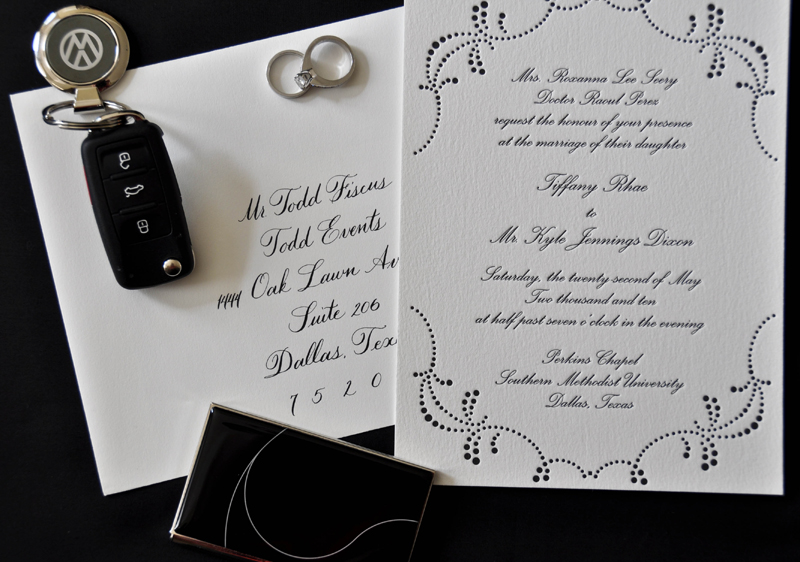 Mr Todd Fiscus
Todd Events
4444 Oak Lawn Av
Suite 206
Dallas, Tex
7 5 2 0
Mrs. Roxanna Lee Seery
Doctor Raoul Perez
request the honour of your presence
at the marriage of their daughter
Tiffany Rhae
to
Mr. Kyle Jennings Dixon
Saturday, the twenty second of May
Two thousand and ten
at half past seven o'clock in the evening
Perkins Chapel
Southern Methodist University
Dallas, Texas